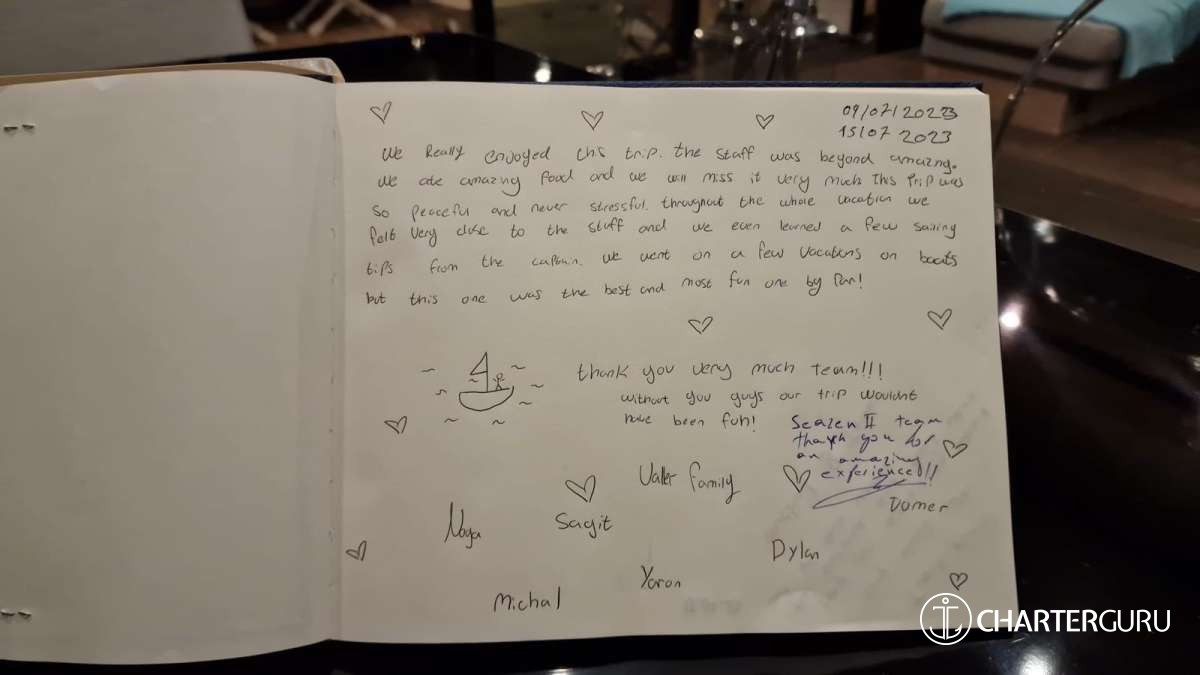 09/07/2023
15/07 2023
We Really enjoyed this trip. the staff was beyond amazing.
We ate amazing food and we will miss it very much this trip was
so peaceful and never stressful. throughout the whole vacation we
felt very close to the stuff and we even learned a few sailing
tips from the captain. we went on a few vacations on boats
but this one was the best and most fun one by far!
thank you very much team!!!
without you guys our trip wouldnt
have been fun!
Seazen II team
thank you for
an amazing
experience!!
family
Noya
Sagit
Dylan
Yaron
Michal
CHARTERGURU